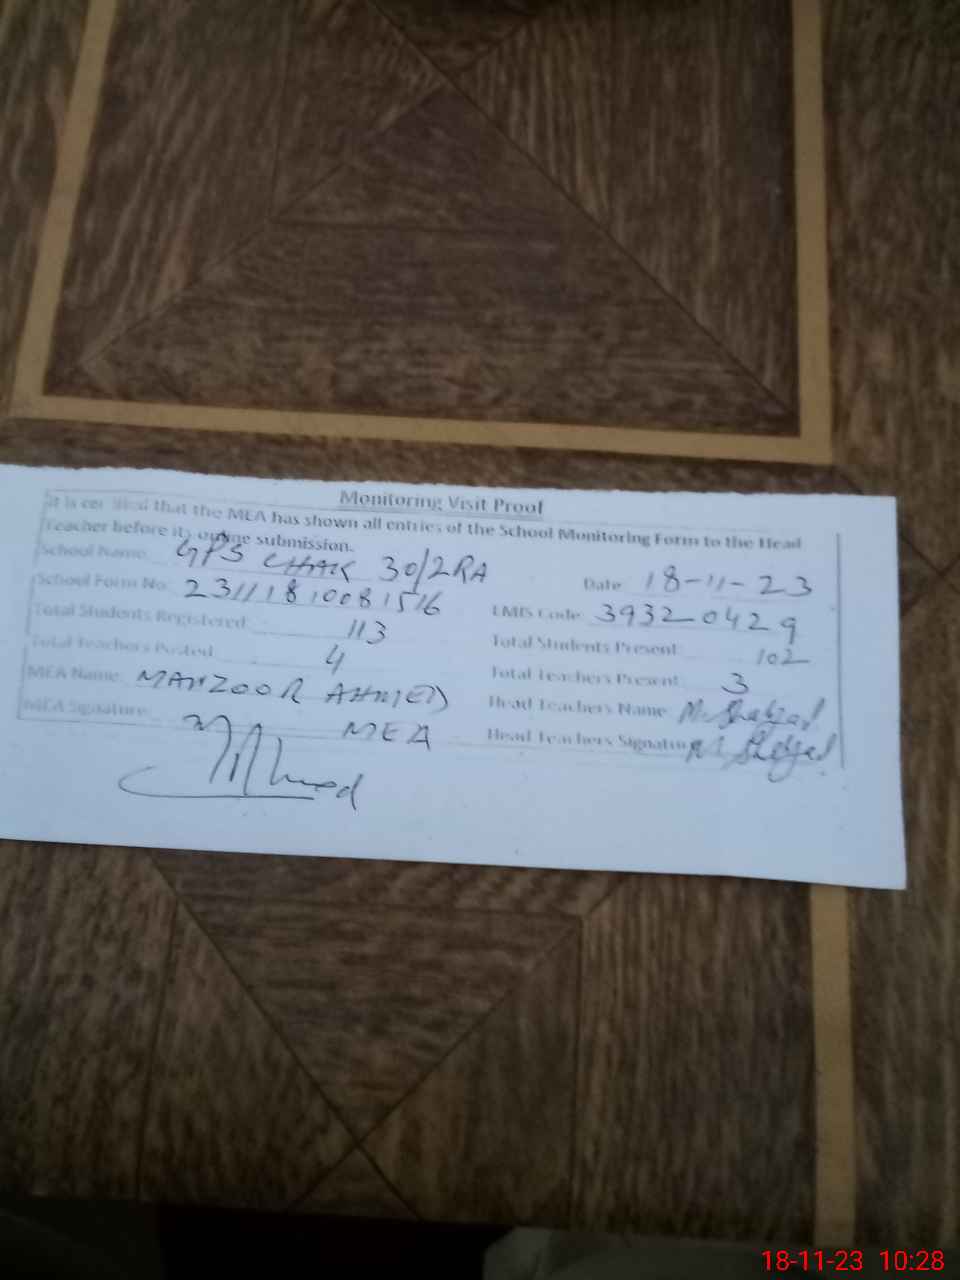 Monitoring Visit Proof
It is certified that the MEA has shown all entries of the School Monitoring Form to the Head
Teacher before its online submission.
School Name: GPS CHAK 30/2RA Date 18-11-23
School Form No: 23111810081516 EMIS Code: 39320429
Total Students Registered: 113 Total Students Present: 102
Total Teachers Posted: 4 Total Teachers Present: 3
MEA Name: MANZOOR AHMED Head Teachers Name: M. Shahzad
MEA Signature: MEA Head Teachers Signature M. Shahzad
MAhmed
18-11-23 10:28